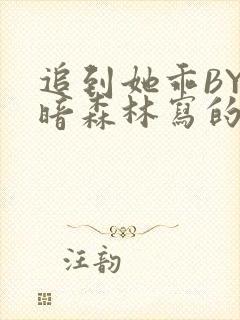 追到她乖BY
暗森林寫的
汪韵